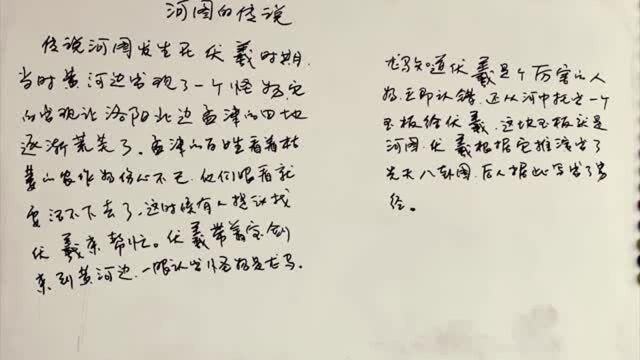 河图的传说
传说河图发生在伏羲时期.
当时黄河边出现了一个怪物它
的出现让洛阳北边孟津的田地
逐渐荒芜了。孟津的百姓看着枯
萎的农作物伤心不已.他们眼看就
要活不下去了,这时候有人提议找
伏羲来帮忙。伏羲带着宝剑
来到黄河边.一眼认出怪物是龙马.
龙马知道伏羲是个厉害的人
物.立即认错.还从河中托出一个
玉板给伏羲.这块玉板就是
河图.伏羲根据它推演出了
先天八卦图.后人据此写出了易
经。